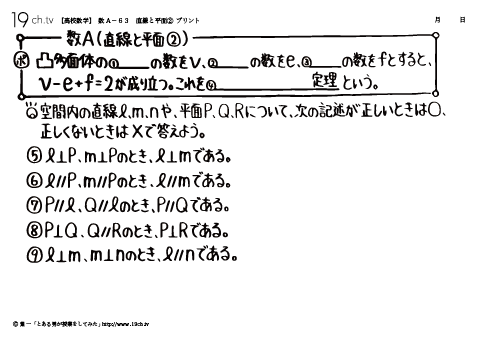 19 ch.tv 【高校数学】 数A－63 直線と平面② プリント 月 日
数A(直線と平面②)
ポ 凸多面体の①____の数をv、②____の数をe、③____の数をfとすると、
v-e+f=2が成り立つ。これを④____定理という。
空間内の直線ℓ,m,nや、平面P,Q,Rについて、次の記述が正しいときは○、
正しくないときは×で答えよう。
⑤ ℓ⊥P、m⊥Pのとき、ℓ⊥mである。
⑥ ℓ//P、m//Pのとき、ℓ//mである。
⑦ P//ℓ、Q//ℓのとき、P//Qである。
⑧ P⊥Q、Q//Rのとき、P⊥Rである。
⑨ ℓ⊥m、m⊥nのとき、ℓ//nである。
© 葉一「とある男が授業をしてみた」http://www.19ch.tv